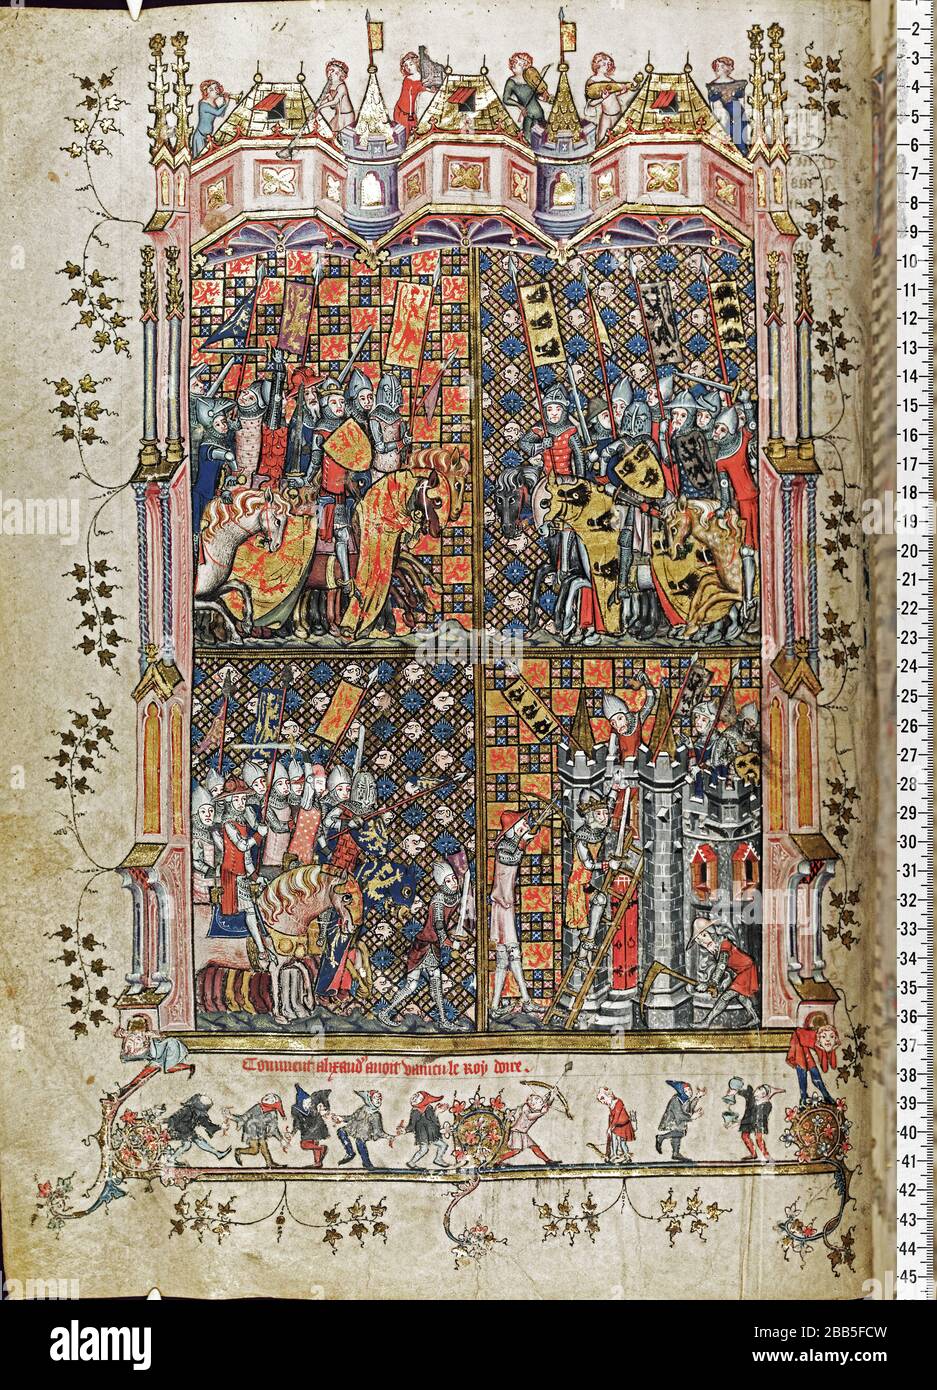 Comment alixand' auoit vaincu le Roy dore.
2
3
4
5
6
7
8
9
10
11
12
13
14
15
16
17
18
19
20
21
22
23
24
25
26
27
28
29
30
31
32
33
34
35
36
37
38
39
40
41
42
43
44
45
alamy
Image ID: 2BB5FCW
www.alamy.com